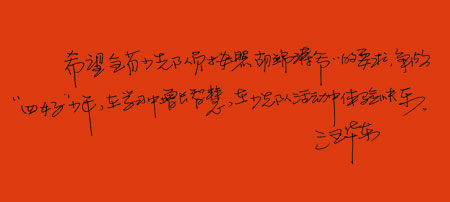 希望全省少先队员按照胡锦涛爷爷的要求，争做
“四好”少年，在学习中增长智慧，在少先队活动中体验快乐。
汪华东